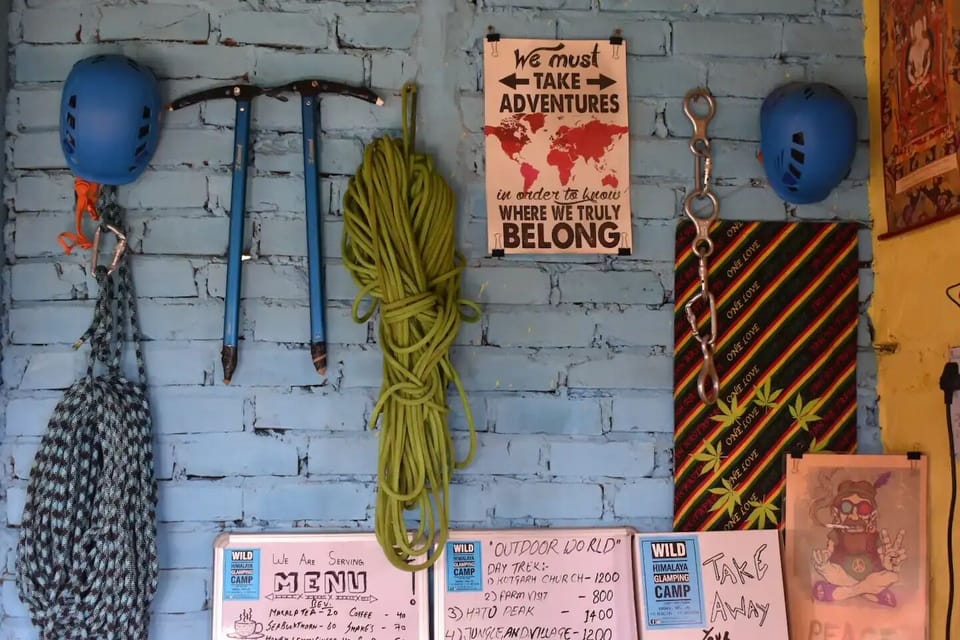 We must
TAKE
ADVENTURES
in order to know
WHERE WE TRULY
BELONG
ONE LOVE
ONE LOVE
ONE LOVE
ONE LOVE
ONE LOVE
ONE LOVE
ONE LOVE
WILD
HIMALAYA
GLAMPING
CAMP
WE ARE SERVING
MENU
BEV:
MASALA TEA - 20 COFFEE - 40
SEABUKTHORN - 60 SHAKES - 70
WILD
HIMALAYA
GLAMPING
CAMP
"OUTDOOR WORLD"
DAY TREK:-
KOTGARH CHURCH - 1200
2) FARM VISIT - 800
3) HATU PEAK - 1400
4) JUNGLE AND VILLAGE - 1200
WILD
HIMALAYA
GLAMPING
CAMP
TAKE
AWAY
PEACE